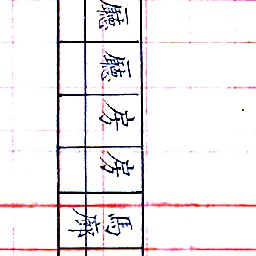 廳
廳
房
房
馬房